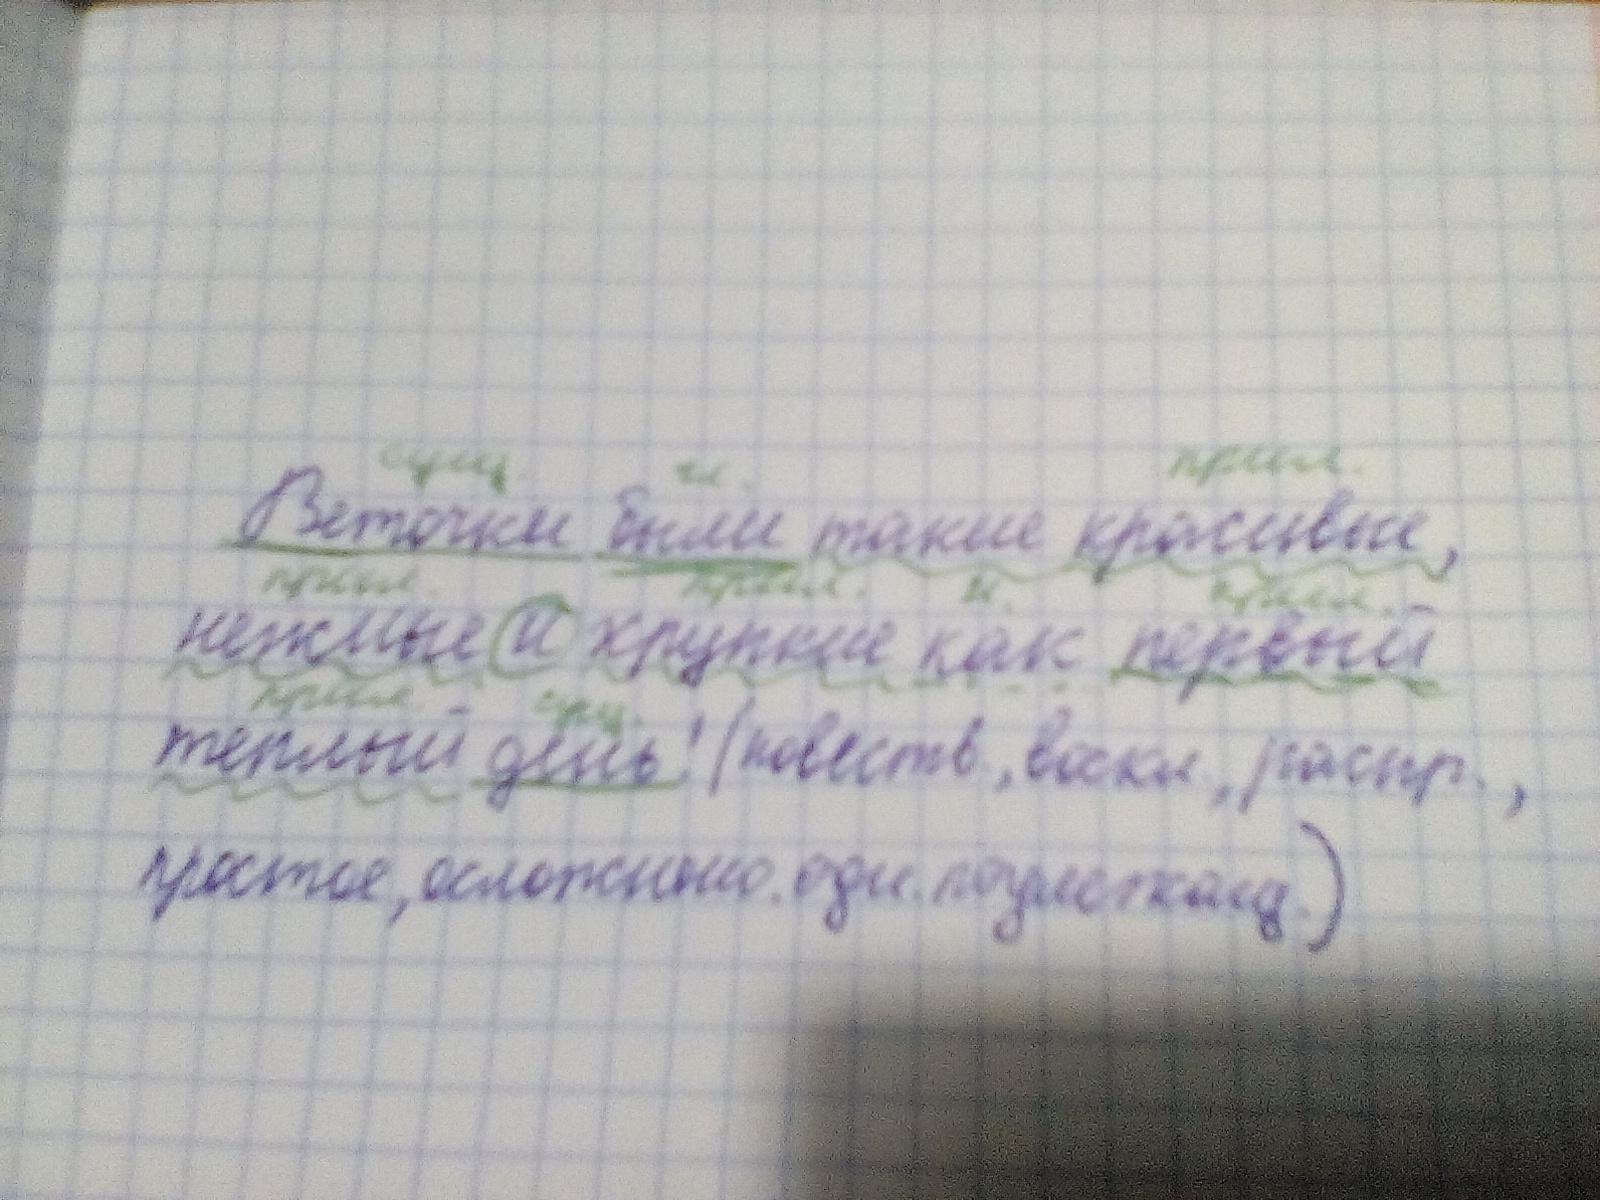 сущ. гл. прил.
Веточки были такие красивые,
прил. прил. н. прил.
нежные и хрупкие как первый
прил. сущ.
теплый день! (повеств., воскл., распр.,
простое, осложнено. одн. подлежащ.)